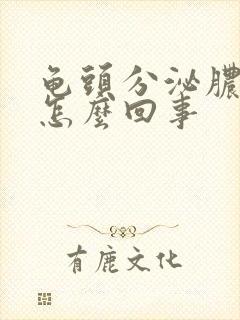 龟頭分泌膿
怎麼回事
有鹿文化